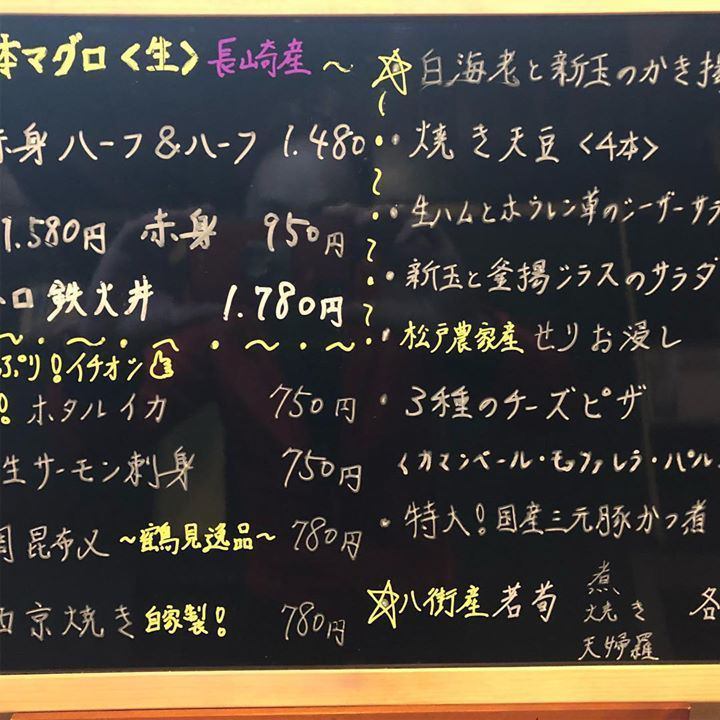 本マグロ〈生〉長崎産～
赤身ハーフ&ハーフ 1.480
1.580円 赤身 950円
トロ 鉄火丼 1.780円
ぷり!イチオシ
! ホタルイカ 750円
生サーモン刺身 750円
昆布〆 ～鶴見逸品～ 780円
西京焼き 自家製! 780円
☆白海老と新玉のかき揚
・焼き天豆〈4本〉
・生ハムとホウレン草のシーザーサラ
・新玉と釜揚シラスのサラダ
・松戸農家産 せりお浸し
・3種のチーズピザ
〈カマンベール・モッツァレラ・パル
・特大!国産三元豚かつ煮
☆八街産 若筍 煮 各
焼き
天婦羅